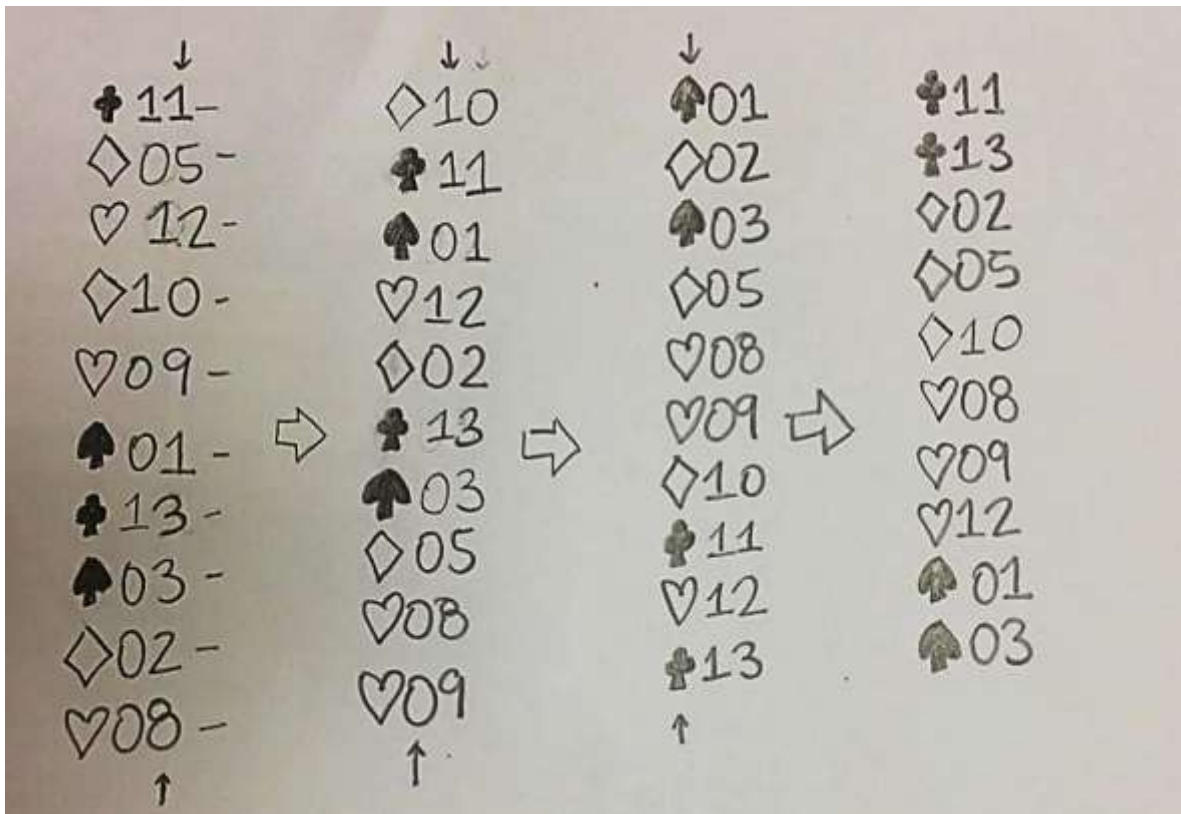 ♣11-
♢05-
♡12-
♢10-
♡09-
♠01-
♣13-
♠03-
♢02-
♡08-
♢10
♣11
♠01
♡12
♢02
♣13
♠03
♢05
♡08
♡09
♠01
♢02
♠03
♢05
♡08
♡09
♢10
♣11
♡12
♣13
♣11
♣13
♢02
♢05
♢10
♡08
♡09
♡12
♠01
♠03